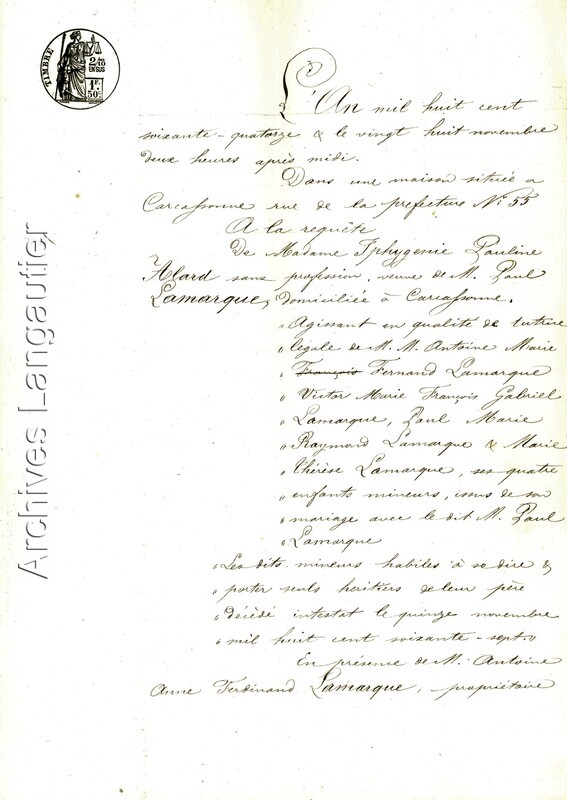 TIMBRE
2/10
EN SUS
1F.
50c.
L'An mil huit cent
soixante-quatorze & le vingt huit novembre
deux heures après midi.
Dans une maison située a
Carcassonne rue de la prefecture No. 55
A la requête
De Madame Iphygenie Pauline
Alard sans profession, veuve de M. Paul
Lamarque, domiciliée à Carcassonne.
"Agissant en qualité de tutrice
"légale de M. M. Antoine Marie
"François Fernand Lamarque
"Victor Marie François Gabriel
"Lamarque, Paul Marie
"Raymond Lamarque & Marie
"Thérèse Lamarque, ses quatre
"enfants mineurs, issus de son
"mariage avec le dit M. Paul
"Lamarque
"Les dits mineurs habiles à se dire &
"porter seuls heritiers de leur père
"décédé intestat le quinze novembre
"mil huit cent soixante-sept."
En présence de M. Antoine
Anne Ferdinand Lamarque, propriétaire
Archives Langautier